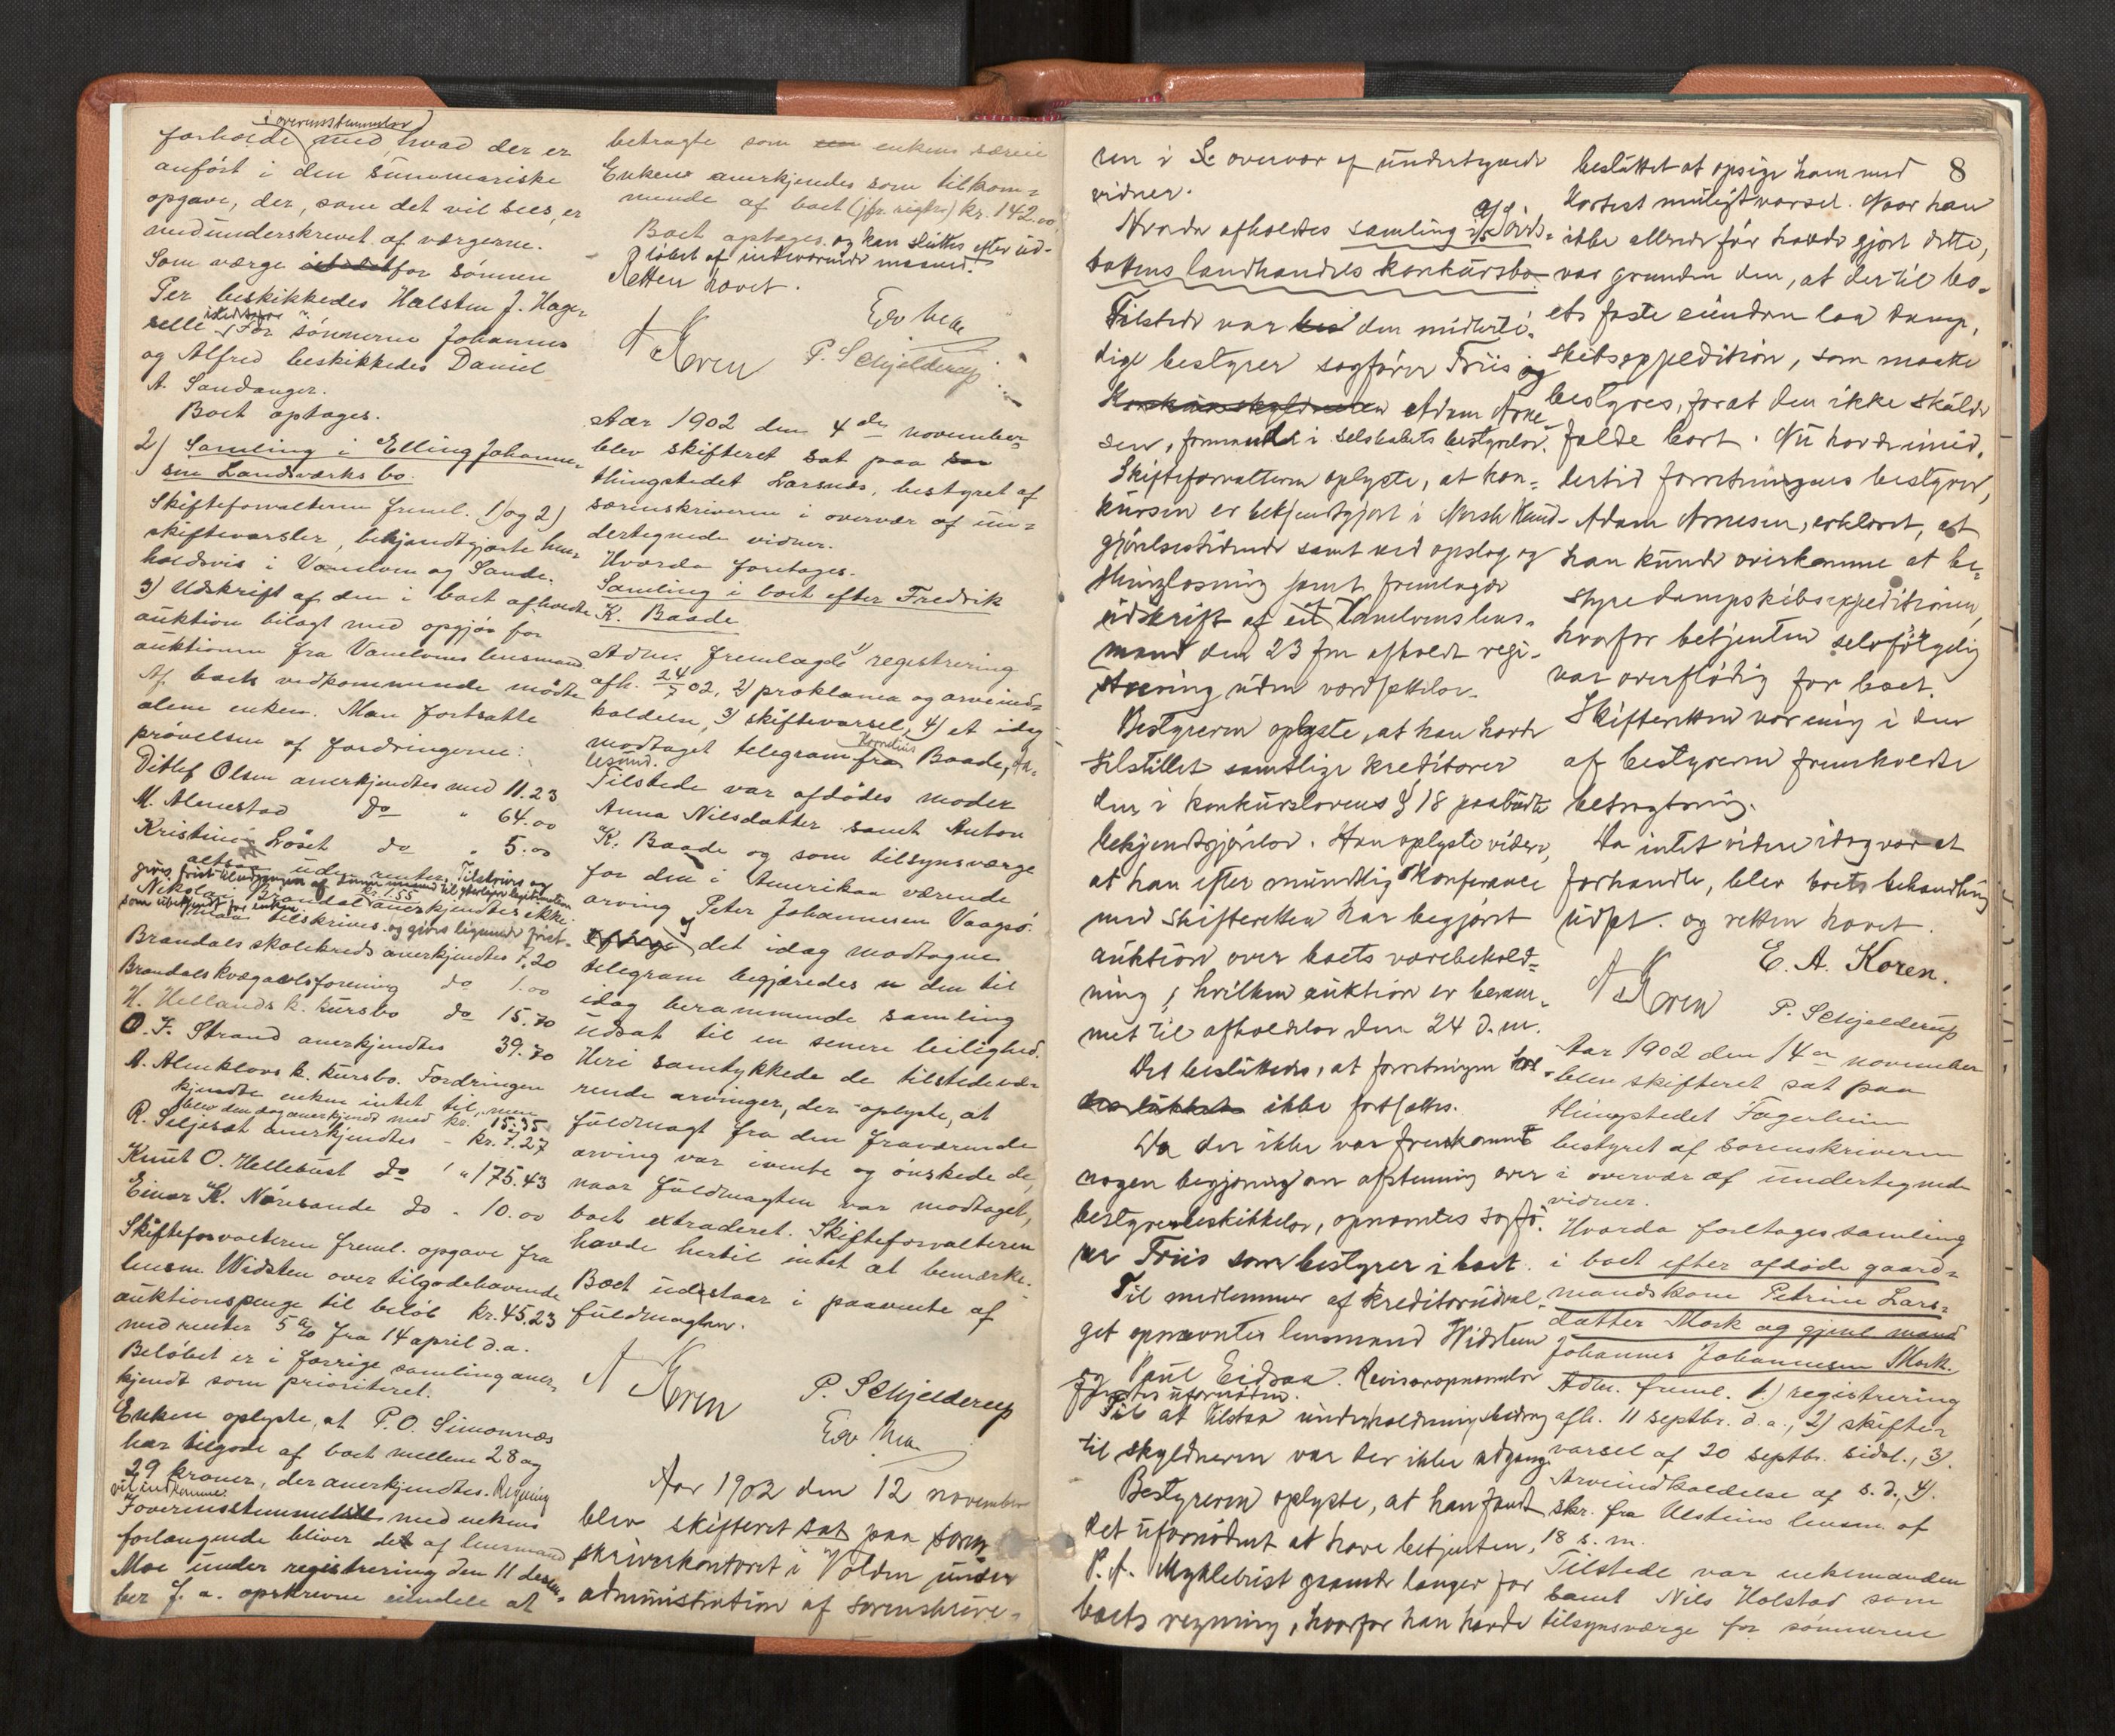 i overensstemmelse
forholde med hvad der er
anført i den summariske
opgave, der, som det vil sees, er
medunderskrevet af værgerne.
Som værge for sønnen
Per beskikkedes Halsten J. Hage-
selle. For sønnerne Johannes
og Alfred beskikkedes Daniel
A. Sandanger.
Boet optages.
2) Samling i Elling Johanne-
sen Landsværks bo.
Skifteforvalteren freml. 1) og 2)
skiftevarsler, bekjendtgjorte hen-
holdsvis i Vanelven og Sande.
3) Udskrift af den i boet afholdte
auktion bilagt med opgjør for
auktionen fra Vanelvens lensmand.
Af boets vedkommende mødte
alene enken. Man fortsatte
prøvelsen af fordringerne:
Ditlef Olsen anerkjendtes med 11.23
M. Almestad do " 64.00
Kristine Løset do " 5.00
uden renter. Tilskrives og
gives frist
Nikolai Brandal anerkjendtes ikke
som ubekjendt for enken
tilskrives og gives lignende frist.
Brandals skolekreds anerkjendtes 7.20
Brandals kvægavlsforening do 1.00
H. Hellands k. kursbo do 15.70
O. J. Strand anerkjendtes 39.70
A. Almklovs k. kursbo. Fordringen
kjendte enken intet til, men
blev den dog anerkjendt med kr. 15.35
R. Seljeset anerkjendtes - kr. 7.27
Knut O. Hellebust do " 175.43
Einar K. Nøresande do - 10.00
Skifteforvalteren freml. opgave fra
lensm. Widsten over tilgodehavende
auktionspenge til beløb kr. 45.23
med renter 5 % fra 14 april d.a.
Beløbet er i forrige samling aner-
kjendt som prioriteret.
Enken oplyste, at P.O. Simonnes
har tilgode af boet mellem 28 og
29 kroner, der anerkjendtes. Regning
vil indkomme.
I overensstemmelse med enkens
forlangende bliver det af lensmand
Moe under registrering den 11 decem-
ber f. a. opskrevne eiendele at
betragte som enkens særeie
Enken anerkjendes som tilkom-
mende af boet (jfr. regtsr.) kr. 142.00
Boet optages og kan sluttes efter ud-
løbet af indeværende maaned.
Retten hævet.
A Koren P. Schjelderup
Aar 1902 den 4de november
blev skifteret sat paa
thingstedet Larsnes, bestyret af
sorenskriveren i overvær af un-
dertegnede vidner.
Hvorda foretages.
Samling i boet efter Fredrik
K. Baade
Adm. fremlagde 1) registrering
afh. 24/7 02, 2) proklama og arveind-
kaldelse, 3) skiftevarsel, 4) et idag
modtaget telegram fra Kornelius Baade, Aa-
lesund.
Tilstede var afdødes moder
Anna Nilsdatter samt Anton
K. Baade og som tilsynsværge
for den i Amerika værende
arving Peter Johannesen Vaagsø.
det idag modtagne
telegram begjæredes den til
idag berammende samling
udsat til en senere leilighed.
Heri samtykkede de tilstedevæ-
rende arvinger, der oplyste, at
fuldmagt fra den fraværende
arving var ivente og ønskede de,
naar fuldmagten var modtaget,
boet extraderet. Skifteforvalteren
havde hertil intet at bemærke.
Boet udestaar i paavente af
fuldmagten.
A Koren P. Schjelderup
Aar 1902 den 12 november
blev skifteret sat paa soren-
skriverkontoret i Volden under
administration af sorenskrive-
8
ren i overvær af undertegnede
vidner.
Hvorda afholdtes samling i A/S Sørds-
botens landhandels konkursbo.
Tilstede var den midlerti-
dige bestyrer sagfører Friis og
Adam Arne-
sen, formand i selskabets bestyrelse.
Skifteforvalteren oplyste, at kon-
kursen er bekjendtgjort i Norsk Kund-
gjørelsestidende samt ved opslag og
thinglæsning samt fremlagde
udskrift af en Vanelvens lens-
mand den 23 f.m afholdt regi-
strering uden værdsættelse.
Bestyreren oplyste, at han havde
tilstillet samtlige kreditorer
den i konkurslovens § 18 paabudte
bekjendtgjørelse. Han oplyste videre,
at han efter mundtlig konferance
med skifteretten har begjært
auktion over boets varebehold-
ning, hvilken auktion er beram-
met til afholdelse den 24 d.m.
Det besluttedes, at forretningen
ikke fortsættes.
Da der ikke var fremkommet
nogen begjæring om afstemning over
bestyrerbeskikkelse, opnævntes sagfø-
rer Friis som bestyrer i boet.
Til medlemmer af kreditorudval-
get opnævntes lensmand Widsteen
og Paul Eidsaa. Revisoropnævnelse
fandtes ufornøden.
Til at tilstaa underholdningsbidrag
til skyldneren var der ikke adgang.
Bestyreren oplyste, at han fandt
det ufornødent at have betjenten,
P. A. Myklebust gaaende længer for
boets regning, hvorfor han havde
besluttet at opsige ham med
kortest muligt varsel. Naar han
ikke allerede før havde gjort dette,
var grunden den, at der til bo-
ets faste eiendom laa damp-
skibsexpedition, som maatte
bestyres, forat den ikke skulde
falde bort. Nu havde imid-
lertid forretningens bestyrer,
Adam Arnesen, erklæret, at
han kunde overkomme at be-
styre dampskibsexpeditionen,
hvorfor betjenten selvfølgelig
var overflødig for boet.
Skifteretten var enig i den
af bestyreren fremholdte
betragtning.
Da intet videre idag var at
forhandle, blev boets behandling
udsat og retten hævet.
E. A. Koren.
A Koren P. Schjelderup
Aar 1902 den 14de november
blev skifteret sat paa
thingstedet Fagerheim
bestyret af sorenskriveren
i overvær af undertegnede
vidner.
Hvorda foretages samling
i boet efter afdøde gaard-
mandskone Petrine Lars-
datter Mork og gjenl. mand
Johannes Johannesen Mork.
Adm. freml. 1.) registrering
afh. 11 septbr. d. a., 2) skifte-
varsel af 20 septbr. sidstl., 3).
Arveindkaldelse af s. d., 4).
skr. fra Ulsteins lensm. af
18 s. m.
Tilstede var enkemanden
samt Nils Holstad som
tilsynsværge for sønnerne